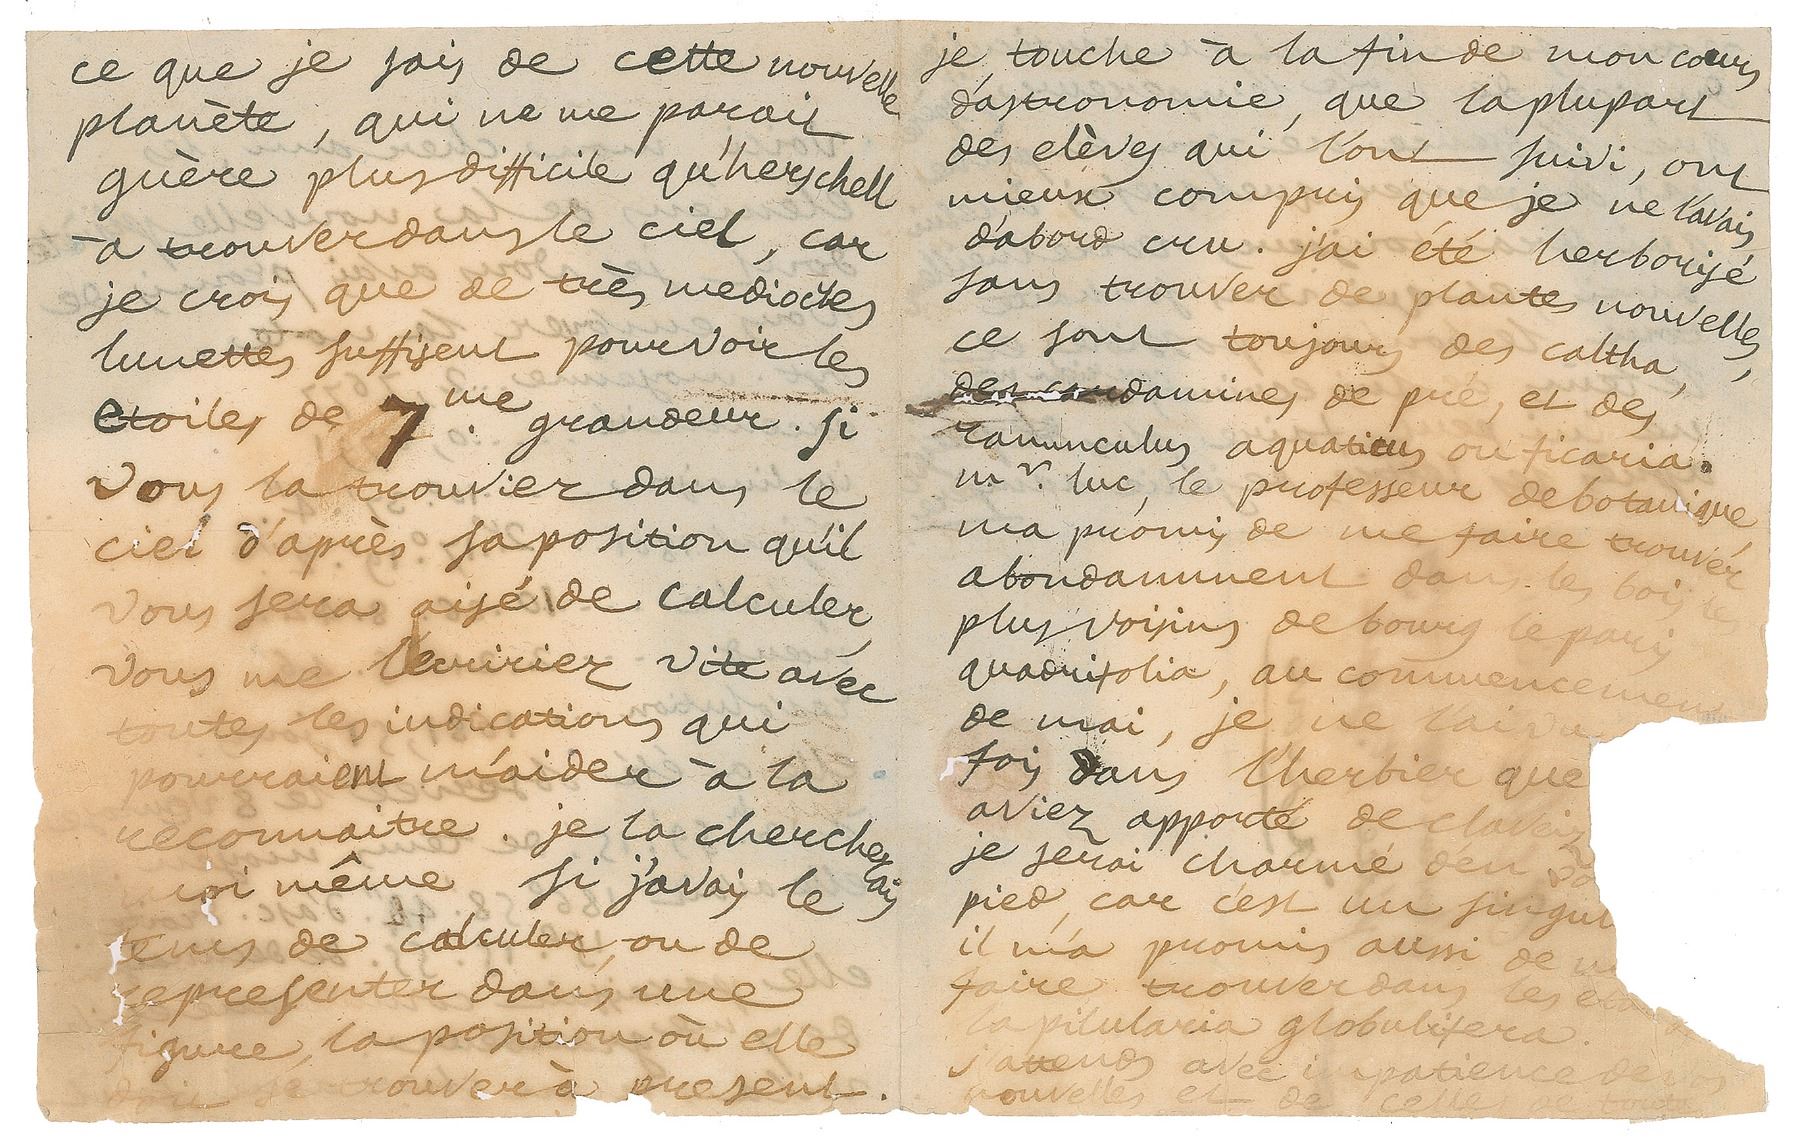 ce que je sais de cette nouvelle
planète, qui ne me parait
guère plus difficile qu'herschell
à trouver dans le ciel, car
je crois que de très mediocres
lunettes suffisent pour voir les
etoiles de 7.me grandeur. si
vous la trouviez dans le
ciel d'après sa position qu'il
vous sera aisé de calculer,
vous me l'ecririez vite avec
toutes les indications qui
pourraient m'aider à la
reconnaitre. je la chercherais
moi même si j'avais le
tems de calculer, ou de
representer dans une
figure, la position où elle
doit se trouver à present.
je touche à la fin de mon cours
d'astronomie, que la plupart
des elèves qui l'ont suivi, ont
mieux compris que je ne l'avais
d'abord cru. j'ai été herborisé
sans trouver de plantes nouvelles,
ce sont toujours des caltha,
des cardamines de pré, et des
ranunculus aquaticus ou ficaria.
mr. luc, le professeur de botanique
m'a promis de me faire trouver
abondamment dans les bois les
plus voisins de bourg le paris
quadrifolia, au commencement
de mai, je ne l'ai vu
fois dans l'herbier que
aviez apporté de claveis
je serai charmé d'en
pied, car c'est un singul
il m'a promis aussi de
faire trouver dans les
la pilularia globulifera.
j'attends avec impatience de vos
nouvelles et de celles de toute